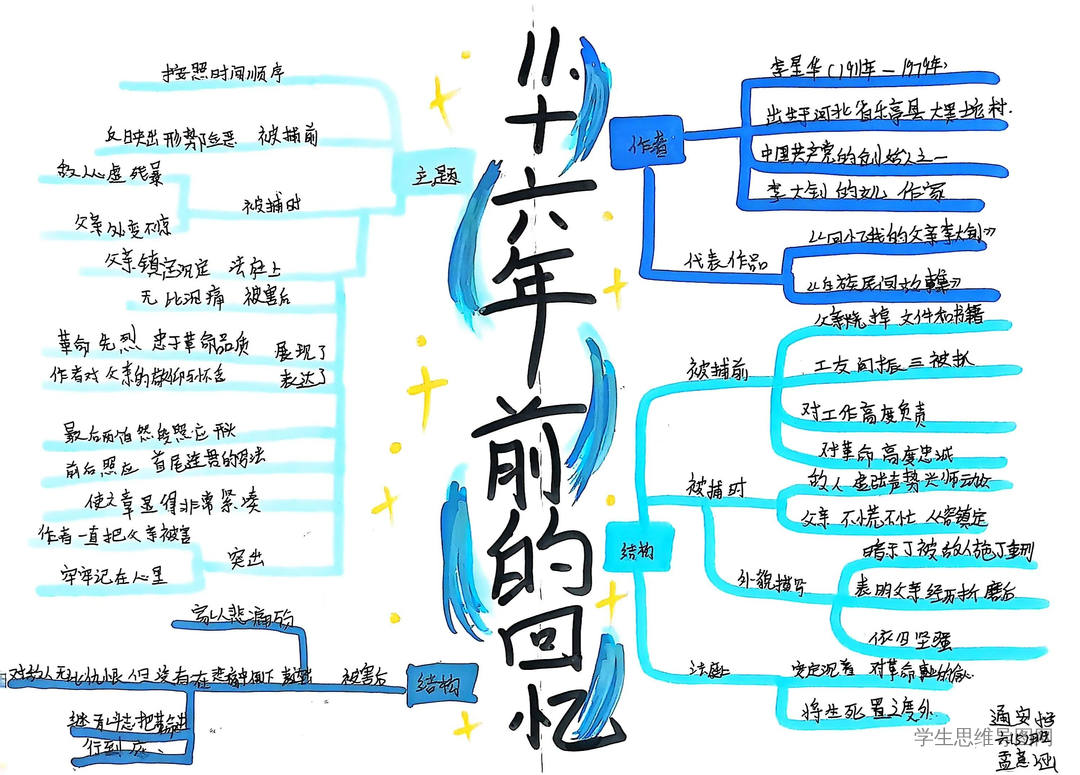 十六年前的回忆
作者
李星华(1911年—1979年)
出生于河北省乐亭县大黑坨村.
中国共产党的创始人之一
李大钊的女儿 作家
代表作品
《回忆我的父亲李大钊》
《白族民间故事集》
结构
被捕前
父亲烧掉文件和书籍
工友阎振三被抓
对工作高度负责
对革命高度忠诚
被捕时
敌人虚张声势兴师动众
父亲不慌不忙从容镇定
外貌描写
暗示了被敌人施了重刑
表明父亲经历折磨后
依旧坚强
法庭
安定沉着 对革命事业的信心
将生死置之度外
主题
按照时间顺序
反映出形势险恶 被捕前
敌人心虚残暴
被捕时
父亲处变不惊
父亲镇定沉定 法庭上
无比沉痛 被害后
革命先烈忠于革命品质 展现了
作者对父亲的敬仰与怀念 表达了
最后
前后照应 首尾连贯的写法
使文章显得非常紧凑
作者一直把父亲被害
突出
牢牢记在心里
结构
被害后
家人悲痛
对敌人无比仇恨但没有在悲痛中倒下
行到底、
通安
六(5)班
孟
学生思维导图网